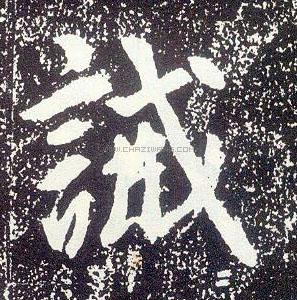 誠
WWW.CHAZIWANG.COM